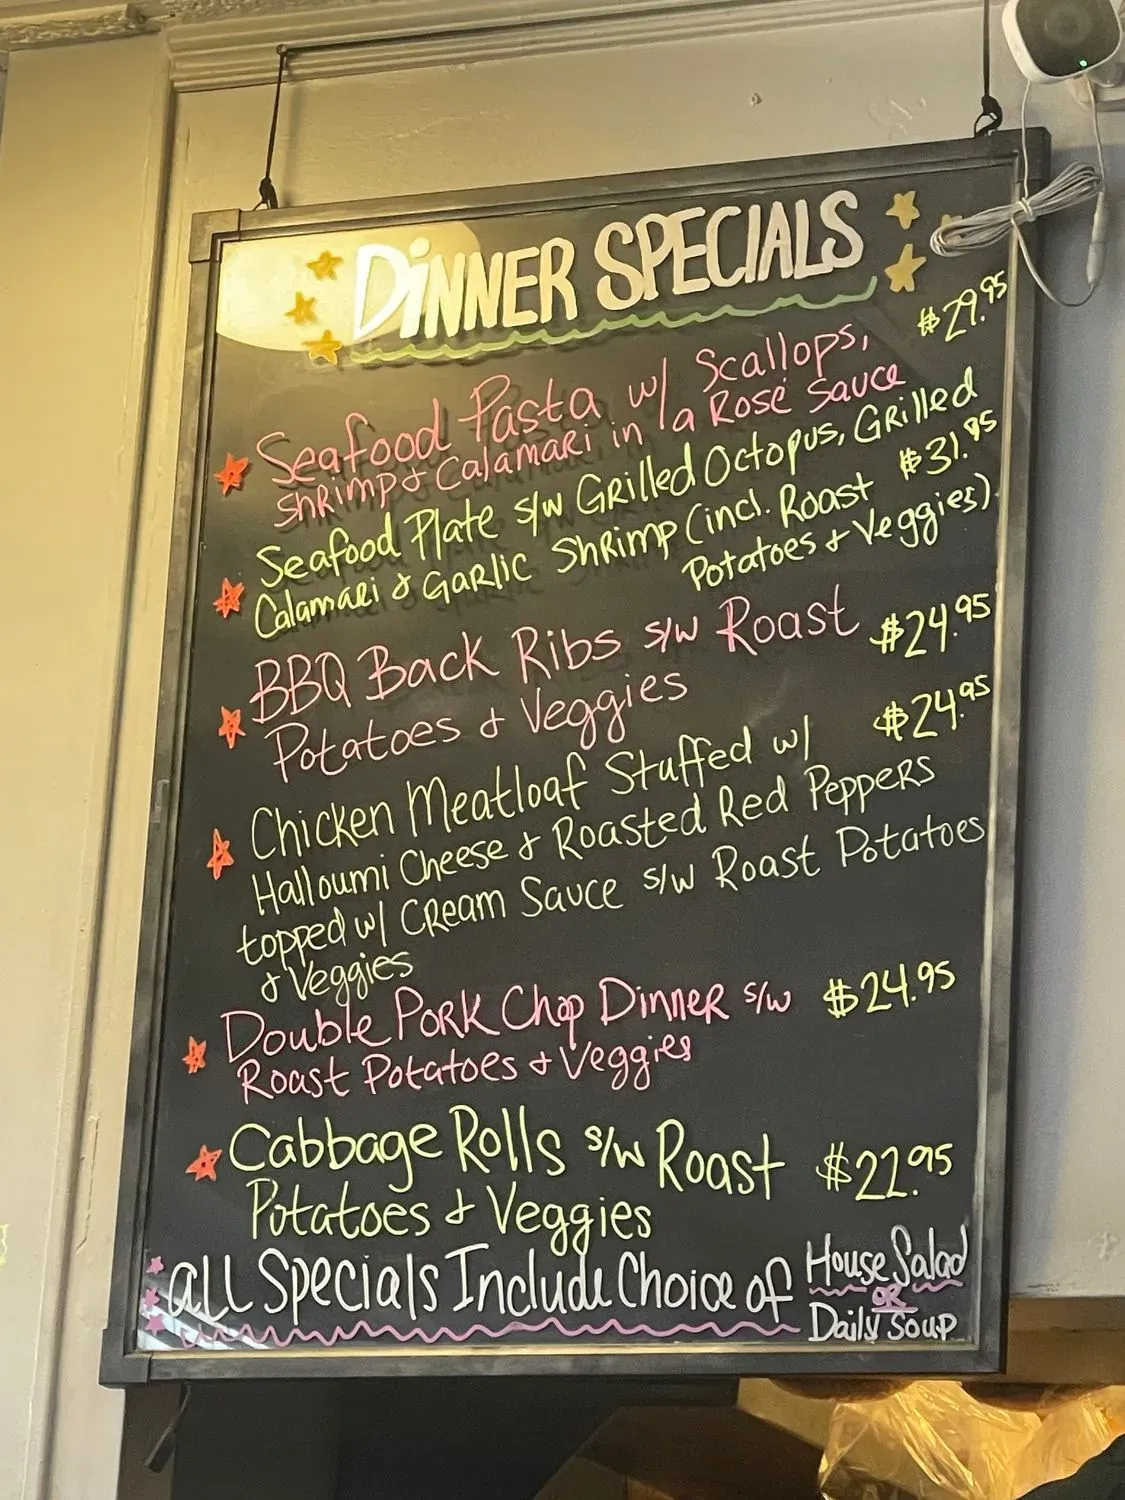 DiNNER SPECIALS
Seafood Pasta w/ Scallops, $29.95
Shrimp & Calamari in a Rosé Sauce
Seafood Plate s/w Grilled Octopus, Grilled
Calamari & Garlic Shrimp (incl. Roast $31.95
Potatoes & Veggies)
BBQ Back Ribs s/w Roast $24.95
Potatoes & Veggies
Chicken Meatloaf Stuffed w/ $24.95
Halloumi Cheese & Roasted Red Peppers
topped w/ Cream Sauce s/w Roast Potatoes
& Veggies
Double Pork Chop Dinner s/w $24.95
Roast Potatoes & Veggies
Cabbage Rolls s/w Roast $22.95
Potatoes & Veggies
All Specials Include Choice of House Salad
OR
Daily Soup